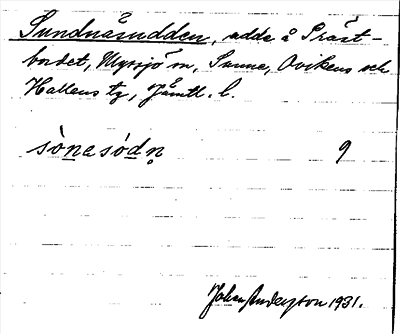 Sundnäsudden, udde å Präst-
bordet, Myrsjö m, Sunne, Ovikens och
Hallens tg, Jämtl. l.
sònesódn̥ 9
Johan Anderzson 1931.